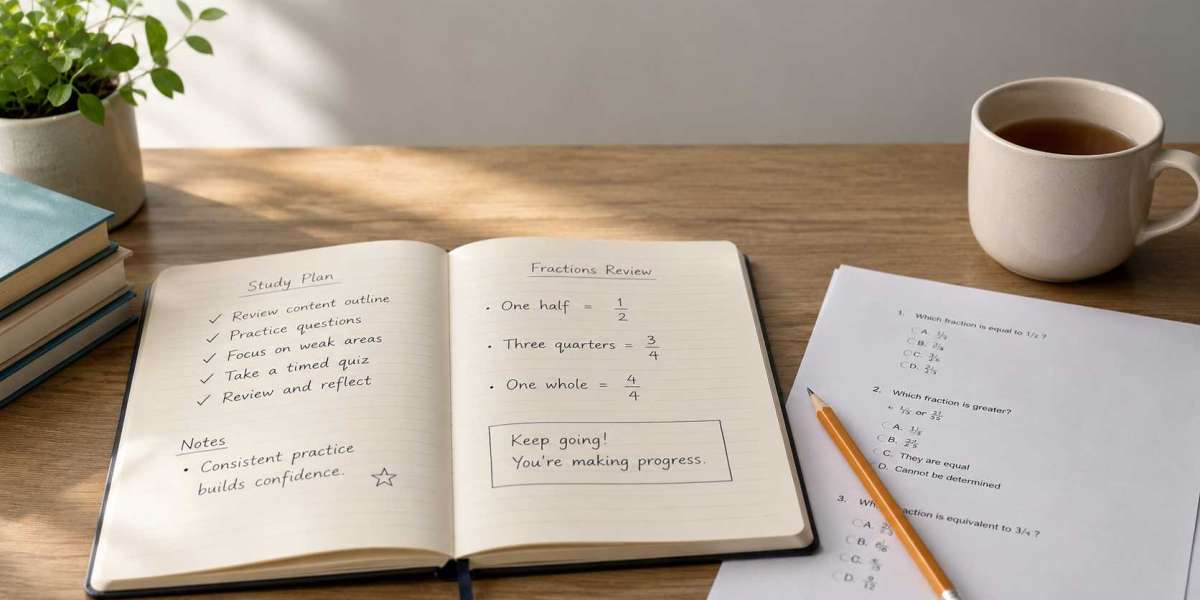 Study Plan
✓ Review content outline
✓ Practice questions
✓ Focus on weak areas
✓ Take a timed quiz
✓ Review and reflect
Notes
• Consistent practice
builds confidence.
Fractions Review
• One half = 1/2
• Three quarters = 3/4
• One whole = 4/4
Keep going!
You're making progress.
1. Which fraction is equal to 1/2 ?
A.
B.
C.
D.
2. Which fraction is greater?
or
A.
B.
C. They are equal
D. Cannot be determined
3. is equivalent to 3/4 ?
A.
B.
C.
D.